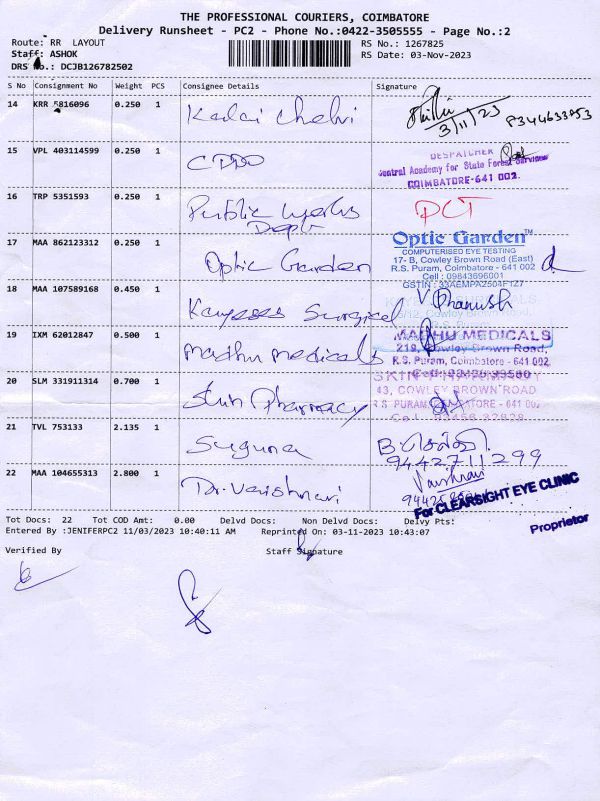 THE PROFESSIONAL COURIERS, COIMBATORE
Delivery Runsheet - PC2 - Phone No.:0422-3505555 - Page No.:2
Route: RR LAYOUT
RS No.: 1267825
Staff: ASHOK
RS Date: 03-Nov-2023
DRS No.: DCJB126782502
S No Consignment No Weight PCS Consignee Details Signature
14 KRR 5816096 0.250 1 Kalai Chelvi
3/11/23
15 VPL 403114599 0.250 1 CPDO
DESPATCHER
Central Academy for State Forest Services
COIMBATORE-641 002.
16 TRP 5351593 0.250 1 Public Works
Dept
17 MAA 862123312 0.250 1 Optic Garden
Optic Garden™
COMPUTERISED EYE TESTING
17- B, Cowley Brown Road (East)
R.S. Puram, Coimbatore - 641 002
Cell : 09843696001
GSTIN : 33AEMPA2504F1Z7
18 MAA 107589168 0.450 1 Surgical
V. Dhanush
19 IXM 62012847 0.500 1 Madhu medicals
MADHU MEDICALS
219, Cowley Brown Road,
R.S. Puram, Coimbatore - 641 002.
20 SLM 331911314 0.700 1 Skin Pharmacy
SKIN PHARMACY
43, COWLEY BROWN ROAD
R S PURAM, COIMBATORE - 641 002.
21 TVL 753133 2.135 1 Suguna
9442711299
22 MAA 104655313 2.800 1 Dr. Vaishnavi
Vaishnavi
For CLEARSIGHT EYE CLINIC
Proprietor
Tot Docs: 22 Tot COD Amt: 0.00 Delvd Docs: Non Delvd Docs: Delvy Pts:
Entered By :JENIFERPC2 11/03/2023 10:40:11 AM Reprinted On: 03-11-2023 10:43:07
Verified By Staff Signature